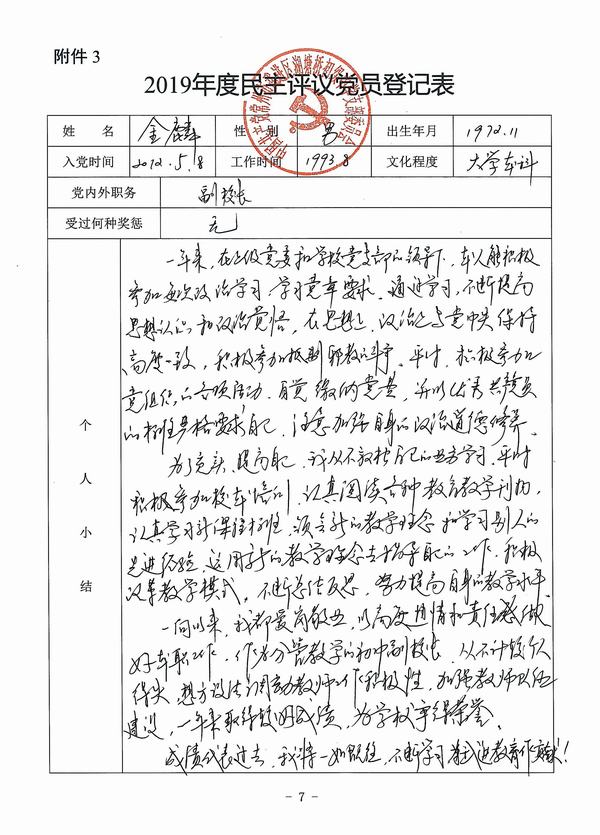 附件 3
2019年度民主评议党员登记表
姓 名 金麟 性 别 男 出生年月 1972.11
入党时间 2012.5.8 工作时间 1993.8 文化程度 大学本科
党内外职务 副校长
受过何种奖惩 无
个人小结
一年来，在上级党委和学校党支部的领导下，本人能积极
参加每次政治学习，学习党章要求。通过学习，不断提高
思想认识和政治觉悟，在思想上、政治上与党中央保持
高度一致，积极参加抵制邪教的斗争。平时，积极参加
党组织的各项活动，自觉缴纳党费，并以优秀共产党员
的标准严格要求自己，注意加强自身的政治道德修养。
为了 提高自己，我从不放松自己的业务学习，平时
积极参加校本培训，认真阅读各种教育教学刊物，
认真学习新课程标准，领会新的教学理念和学习别人的
先进经验，运用新的教学理念去指导自己的工作，积极
改革教学模式，不断总结反思，努力提高自身的教学水平。
一向以来，我都爱岗敬业，以高度热情和责任感做
好本职工作，作为分管教学的初中副校长，从不计较个人
得失，想方设法调动教师工作积极性，加强教师队伍
建设，一年来取得较好成绩，为学校争得荣誉。
成绩代表过去，我将一如既往，不断学习，为武进教育作贡献！
- 7 -